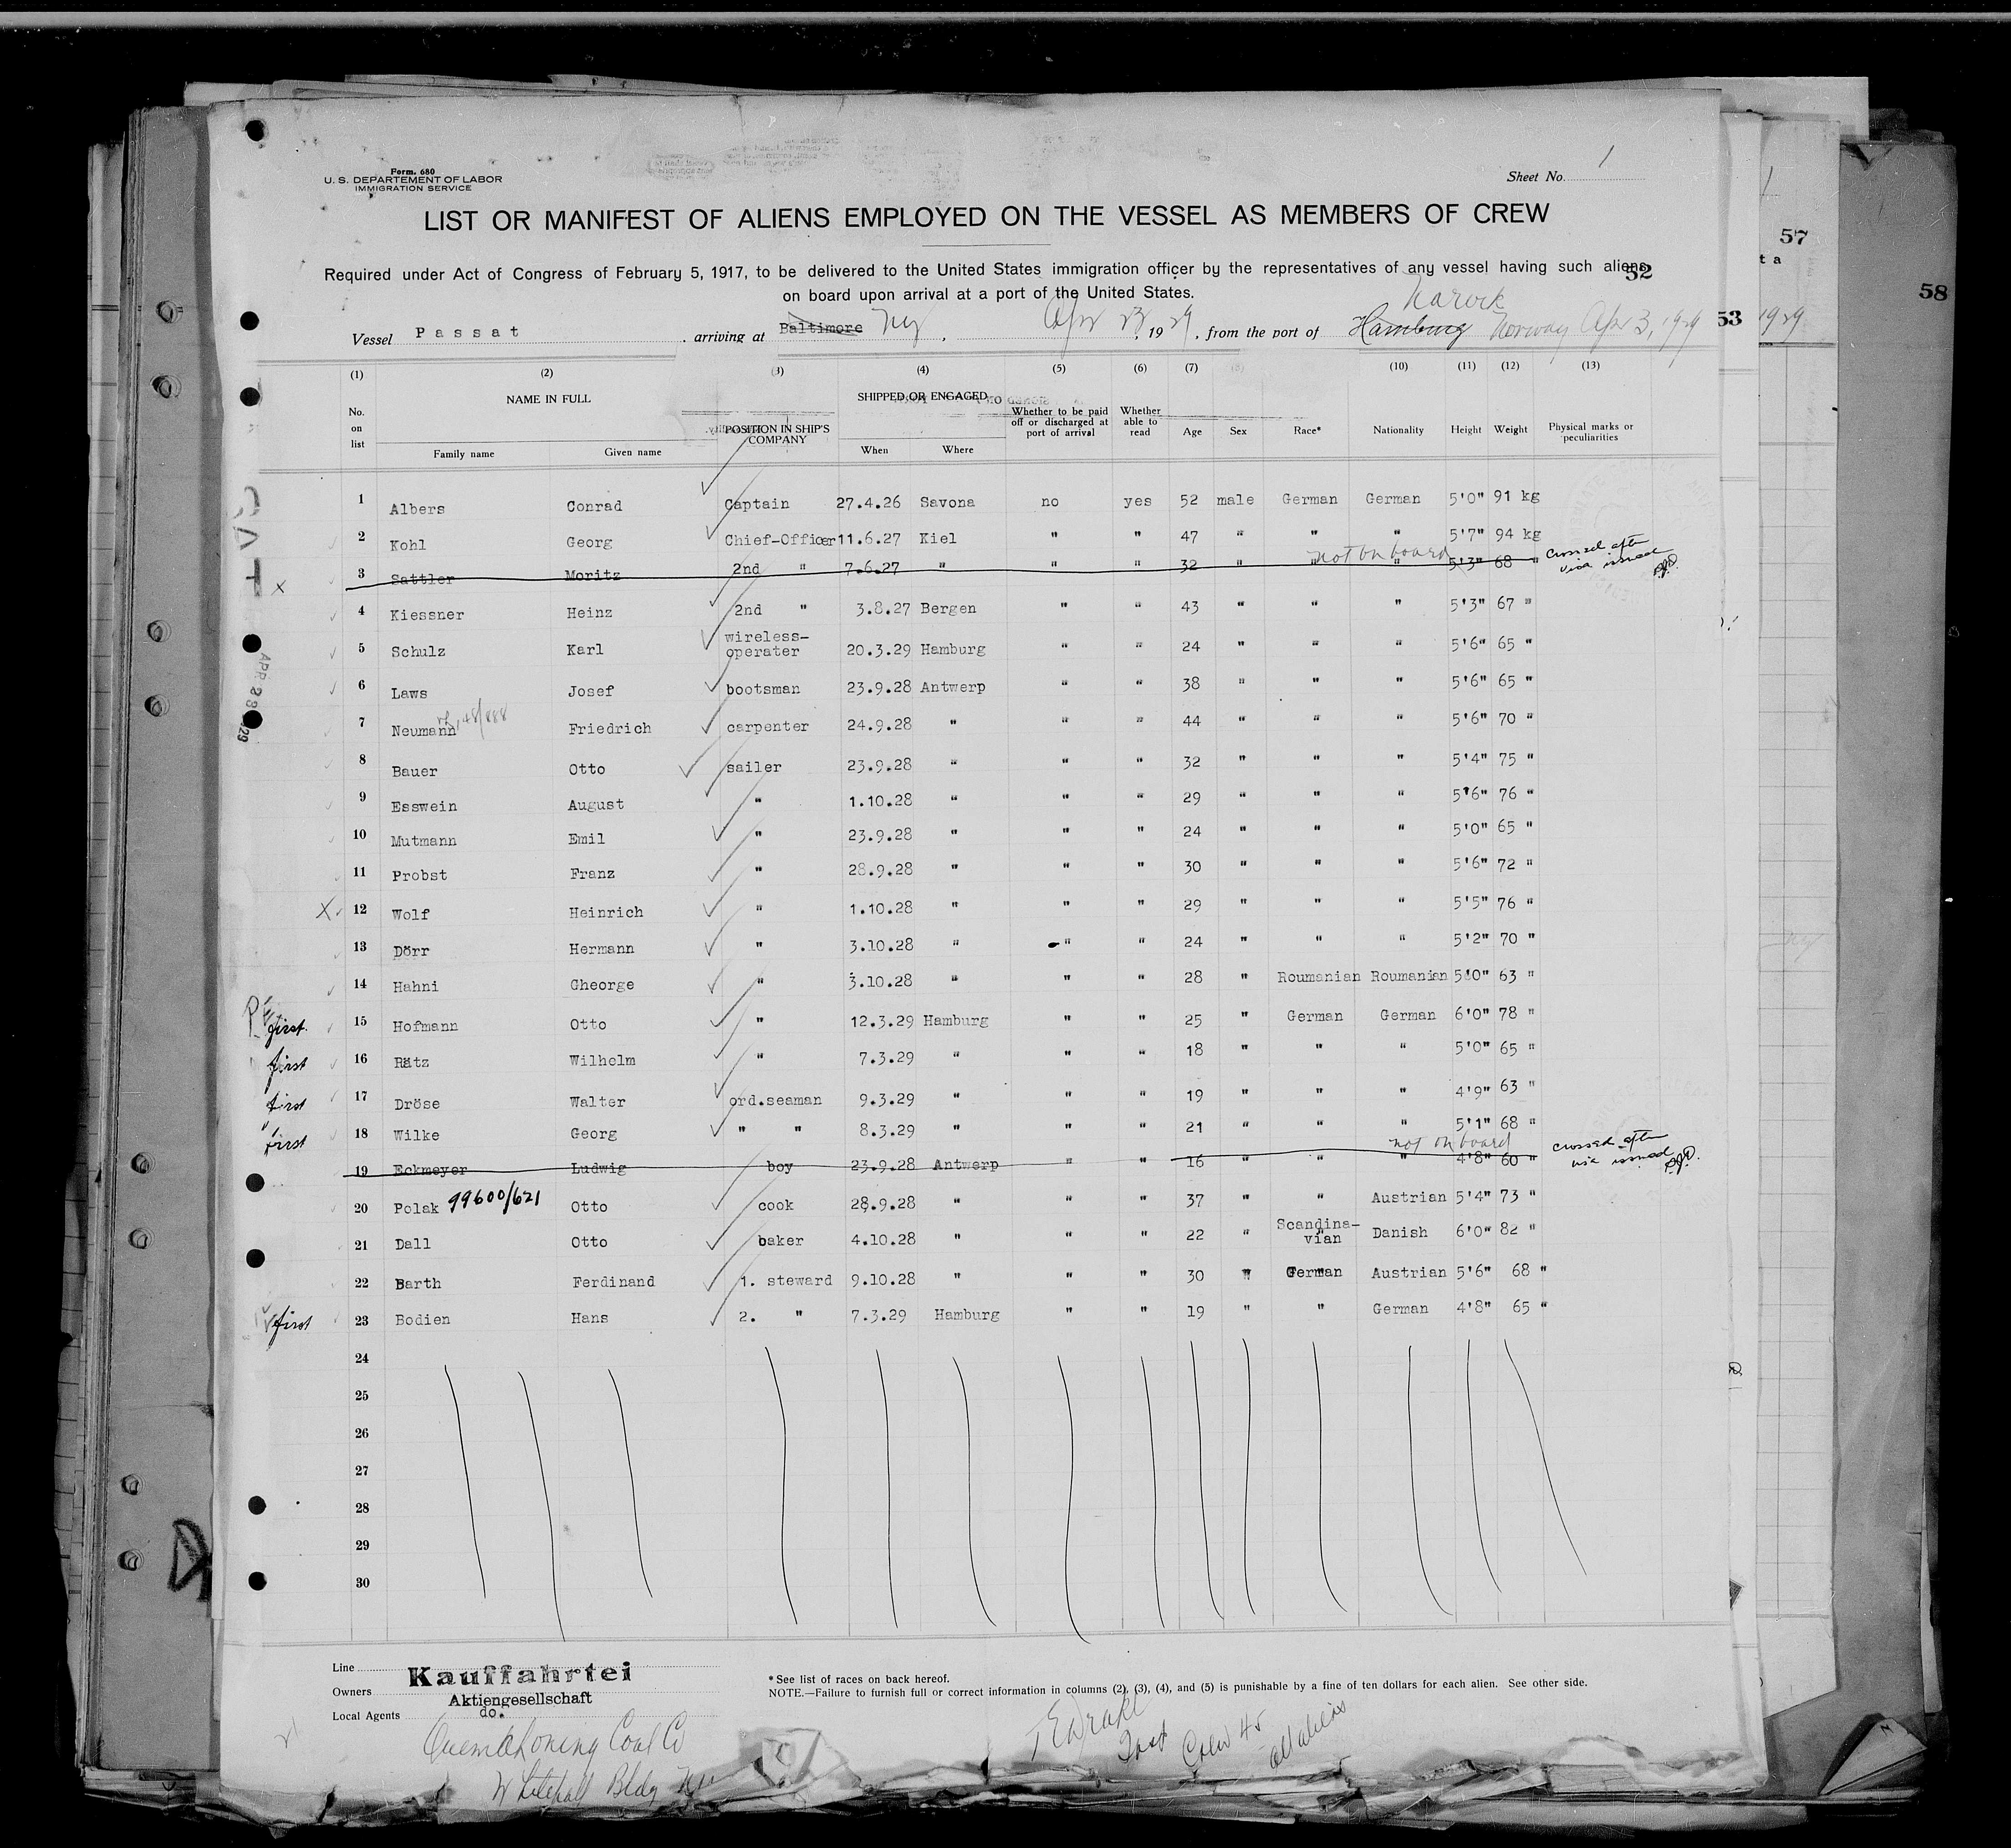 Form. 680
U. S. DEPARTEMENT OF LABOR
IMMIGRATION SERVICE
Sheet No. 1
LIST OR MANIFEST OF ALIENS EMPLOYED ON THE VESSEL AS MEMBERS OF CREW
Required under Act of Congress of February 5, 1917, to be delivered to the United States immigration officer by the representatives of any vessel having such aliens
on board upon arrival at a port of the United States.
52
53
57
58
t a
1929
Vessel Passat, arriving at Baltimore NY, Apr 23, 1929, from the port of Hamburg Narvik Norway Apr 3, 1929
(1) (2) (3) (4) (5) (6) (7) (8) (10) (11) (12) (13)
No. on list
NAME IN FULL
Family name Given name
POSITION IN SHIP'S COMPANY
SHIPPED OR ENGAGED
When Where
Whether to be paid off or discharged at port of arrival
Whether able to read
Age Sex Race* Nationality Height Weight
Physical marks or peculiarities
1 Albers Conrad Captain 27.4.26 Savona no yes 52 male German German 5'0" 91 kg
2 Kohl Georg Chief-Officer 11.6.27 Kiel " " 47 " " " 5'7" 94 kg
not on board
3 Sattler Moritz 2nd " 7.6.27 " " " 32 " " " 5'3" 68 " crossed after visa issued
4 Kiessner Heinz 2nd " 3.8.27 Bergen " " 43 " " " 5'3" 67 "
5 Schulz Karl wireless-operater 20.3.29 Hamburg " " 24 " " " 5'6" 65 "
6 Laws Josef bootsman 23.9.28 Antwerp " " 38 " " " 5'6" 65 "
7 Neumann Friedrich carpenter 24.9.28 " " " 44 " " " 5'6" 70 "
8 Bauer Otto sailer 23.9.28 " " " 32 " " " 5'4" 75 "
9 Esswein August " 1.10.28 " " " 29 " " " 5'6" 76 "
10 Mutmann Emil " 23.9.28 " " " 24 " " " 5'0" 65 "
11 Probst Franz " 28.9.28 " " " 30 " " " 5'6" 72 "
X 12 Wolf Heinrich " 1.10.28 " " " 29 " " " 5'5" 76 "
13 Dörr Hermann " 3.10.28 " " " 24 " " " 5'2" 70 "
14 Hahni Gheorge " 3.10.28 " " " 28 " Roumanian Roumanian 5'0" 63 "
first. 15 Hofmann Otto " 12.3.29 Hamburg " " 25 " German German 6'0" 78 "
first 16 Rätz Wilhelm " 7.3.29 " " " 18 " " " 5'0" 65 "
first 17 Dröse Walter ord.seaman 9.3.29 " " " 19 " " " 4'9" 63 "
first 18 Wilke Georg " " 8.3.29 " " " 21 " " " 5'1" 68 "
not on board
19 Eckmeyer Ludwig boy 23.9.28 Antwerp " " 16 " " " 4'8" 60 " crossed after visa issued
20 Polak 99600/621 Otto cook 28.9.28 " " " 37 " " Austrian 5'4" 73 "
21 Dall Otto baker 4.10.28 " " " 22 " Scandina-vian Danish 6'0" 82 "
22 Barth Ferdinand 1. steward 9.10.28 " " " 30 " German Austrian 5'6" 68 "
first 23 Bodien Hans 2. " 7.3.29 Hamburg " " 19 " " German 4'8" 65 "
24
25
26
27
28
29
30
Line Kauffahrtei
Owners Aktiengesellschaft
Local Agents do.
Quemahoning Coal Co
Whitehall Bldg NY
*See list of races on back hereof.
NOTE.—Failure to furnish full or correct information in columns (2), (3), (4), and (5) is punishable by a fine of ten dollars for each alien. See other side.
Crew 45
all aliens